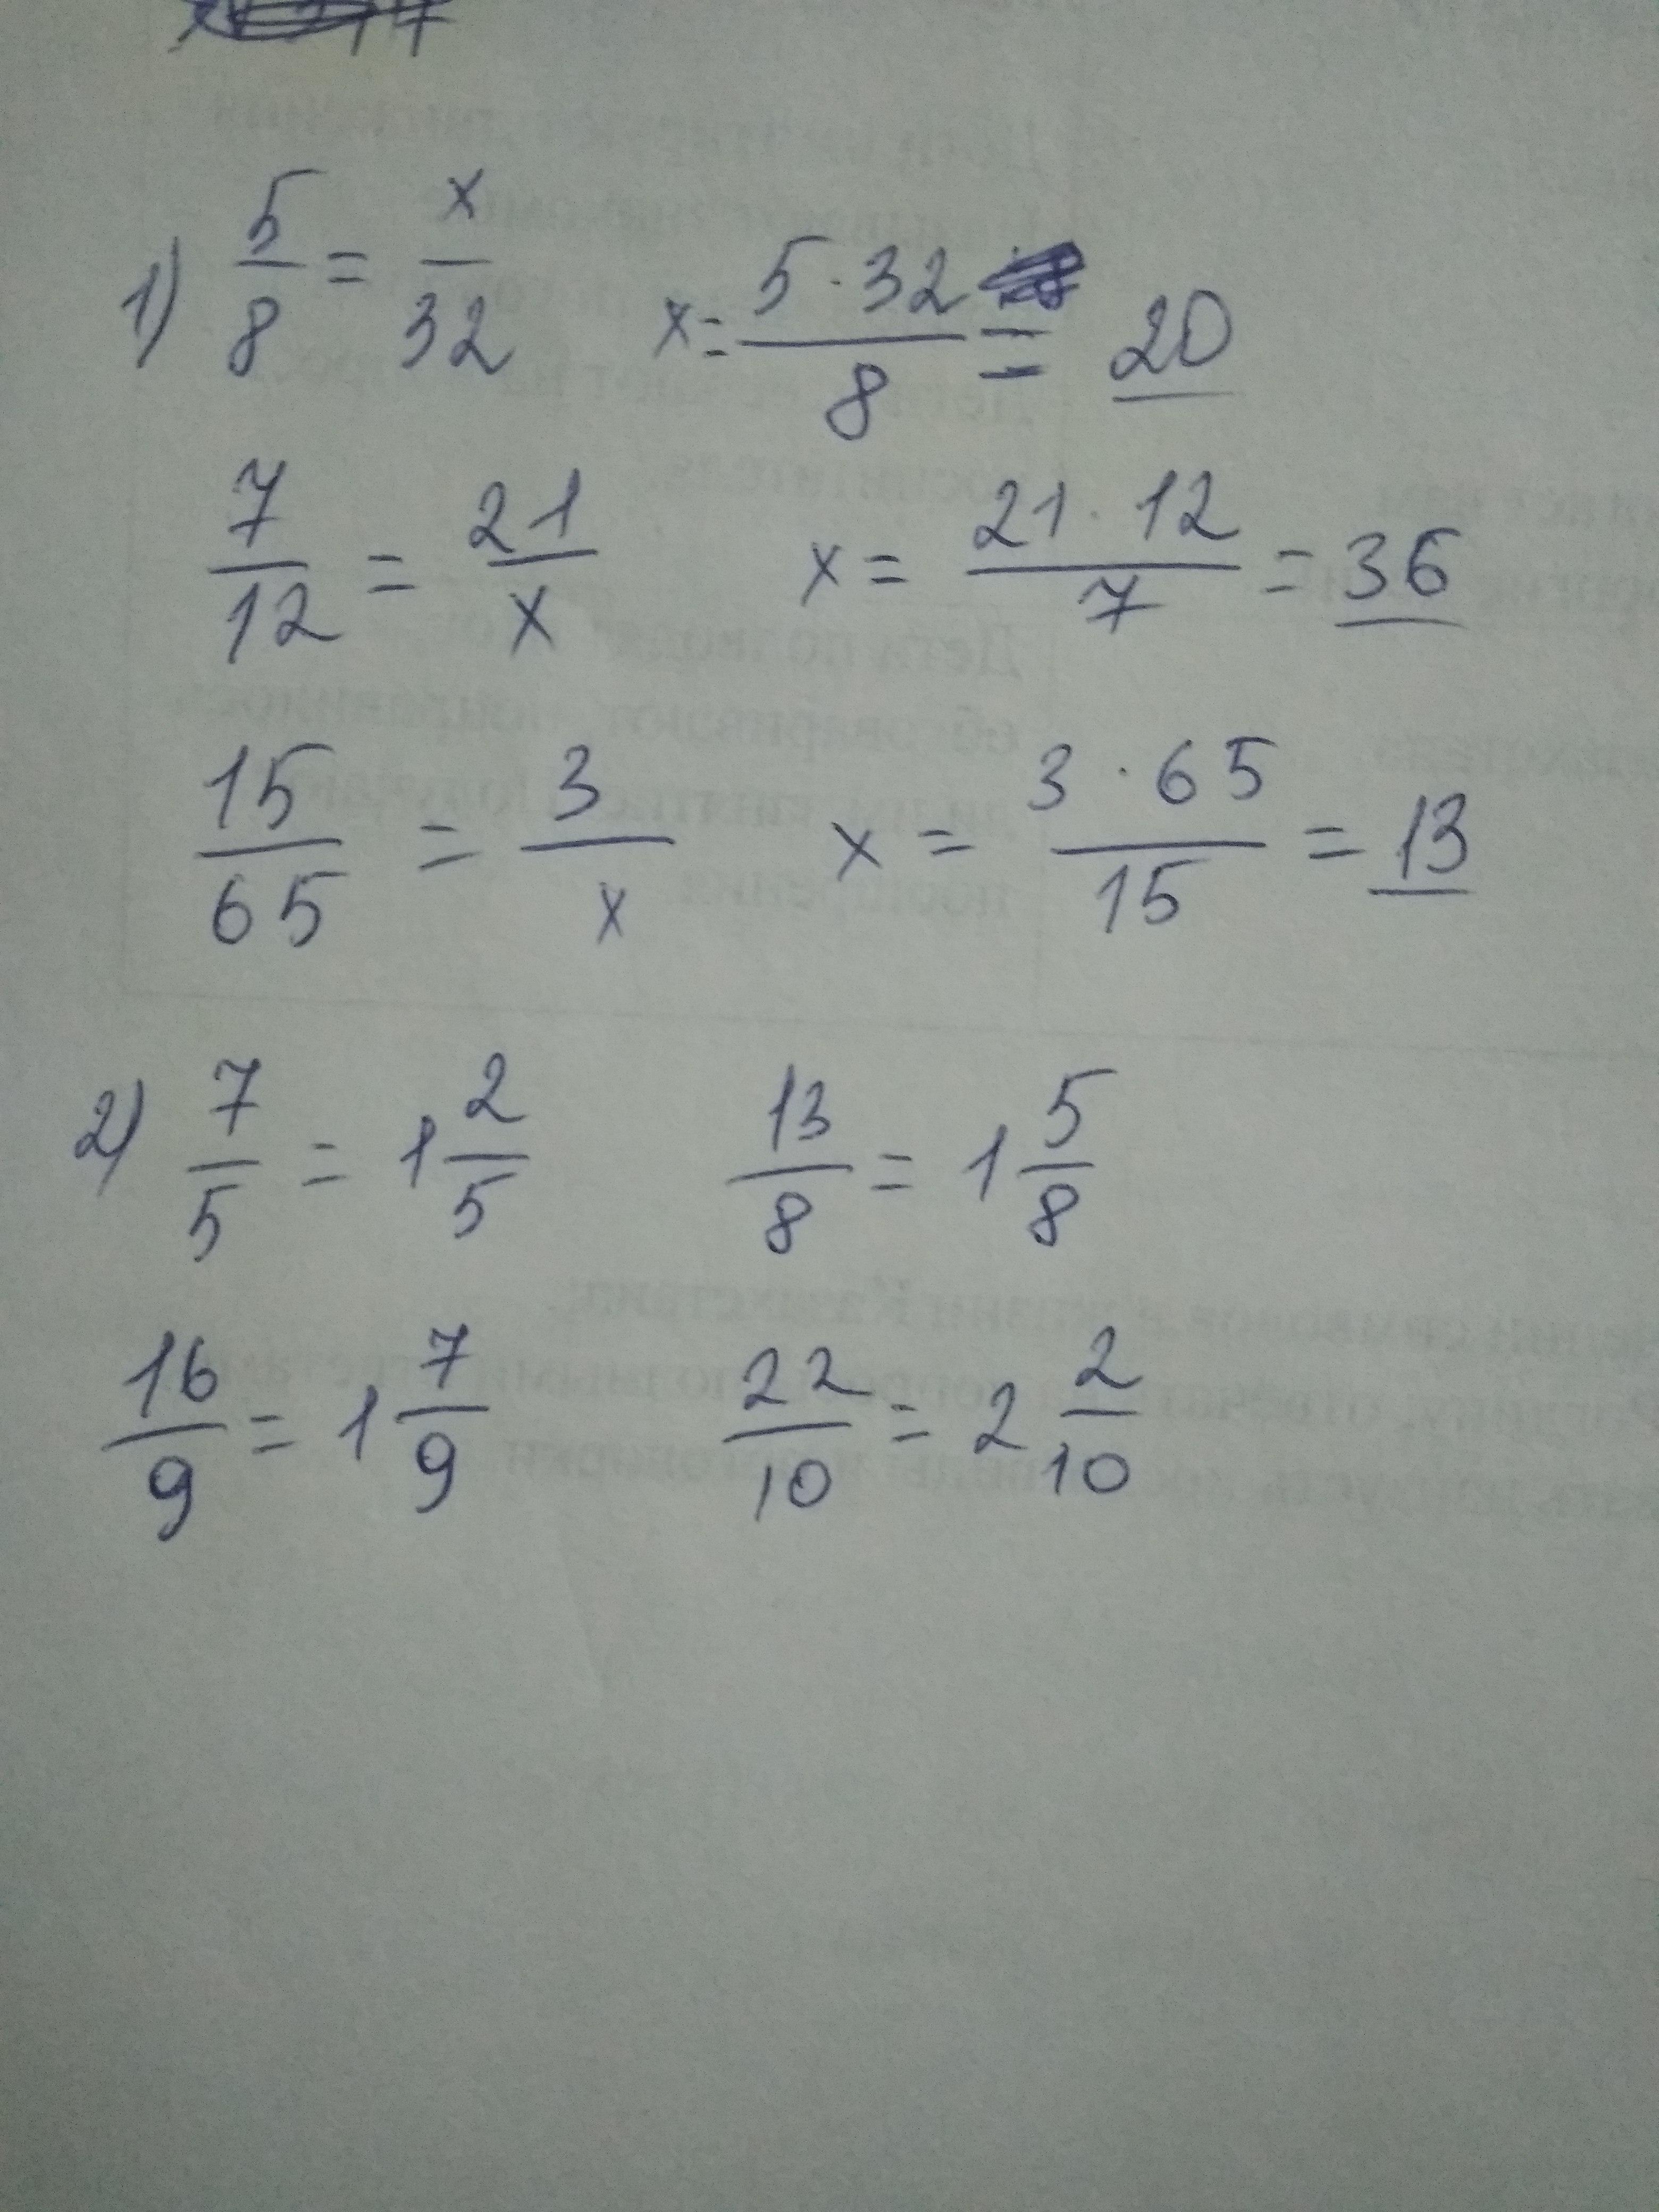 1) 5/8 = x/32 x = 5·32/8 = 20
7/12 = 21/x x = 21·12/7 = 36
15/65 = 3/x x = 3·65/15 = 13
2) 7/5 = 1 2/5 13/8 = 1 5/8
16/9 = 1 7/9 22/10 = 2 2/10